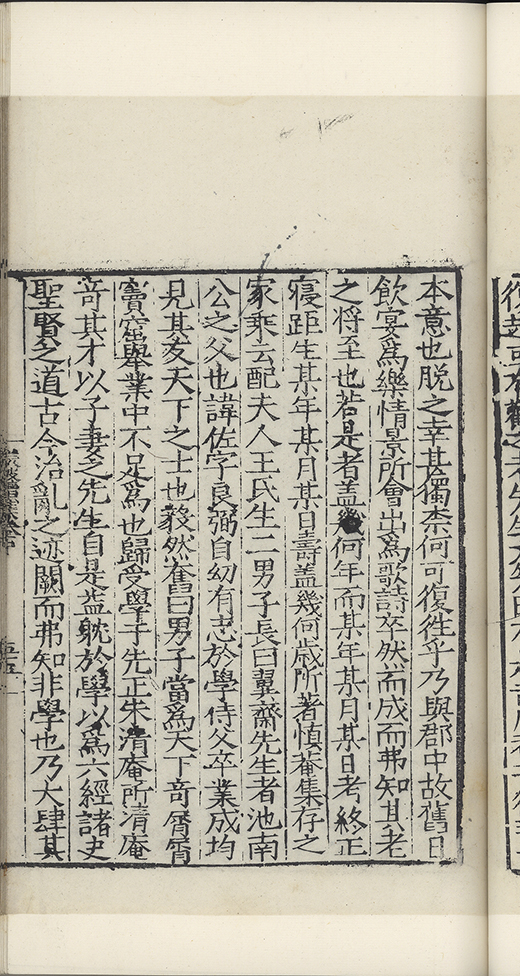 本意也脫之幸甚獨柰何可復徃乎乃與郡中故舊日
飮宴爲樂情景所會出爲歌詩卒然而成而弗知其老
之將至也若是者盖幾何年而某年某月某日考終正
寢距生某年某月某日壽盖幾何歲所著愼菴集存之
家乘云配夫人王氏生二男子長曰翼齋先生者池南
公之父也諱佐字良弼自幼有志於學侍父卒業成均
見其友天下之士也毅然奮曰男子當爲天下奇屑屑
賣窟擧業中不足爲也歸受學于先正朱淸庵所淸庵
奇其才以子妻之先生自是益躭於學以爲六經諸史
聖賢之道古今治亂之迹闕而弗知非學也乃大肆其